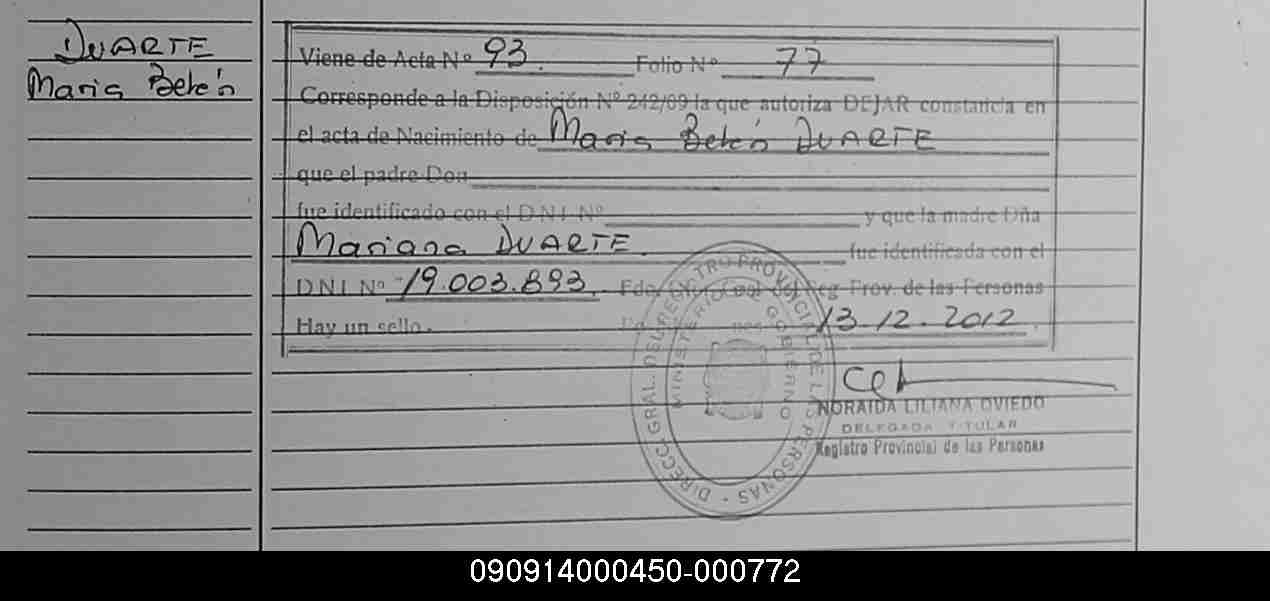 DUARTE
Maria Belén
Viene de Acta Nº 93. Folio Nº 77
Corresponde a la Disposición Nº 242/09 la que autoriza DEJAR constancia en
el acta de Nacimiento de Maria Belén DUARTE
que el padre Don
fue identificado con el D N I Nº y que la madre Dña
Mariana DUARTE. fue identificada con el
D N I Nº 19.003.893. Fdo. Gral. del Reg. Prov. de las Personas
Hay un sello. 13-12-2012.
NORAIDA LILIANA OVIEDO
DELEGADA TITULAR
Registro Provincial de las Personas
DIRECC. GRAL. DEL REGISTRO PROVINCIAL DE LAS PERSONAS -
MINISTERIO GOBIERNO
090914000450-000772